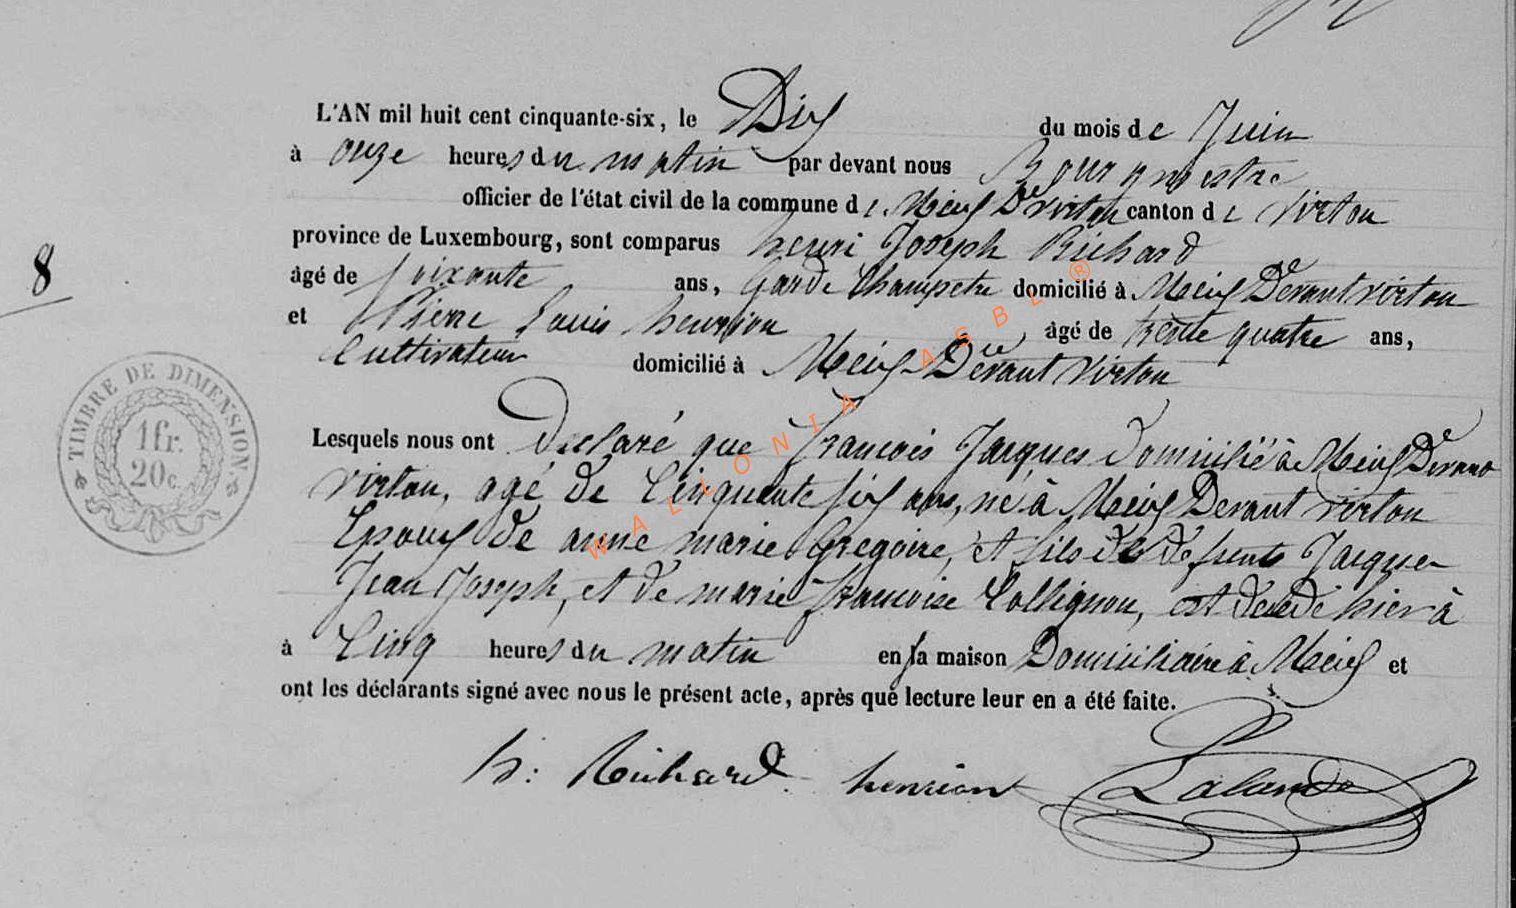 L'AN mil huit cent cinquante-six, le Dix du mois de Juin
à onze heures du matin par devant nous Bourgmestre
officier de l'état civil de la commune de Meix Dt Virton canton de Virton
province de Luxembourg, sont comparus henri Joseph Richard
8
âgé de soixante ans, Garde Champetre domicilié à Meix Devant virton
et Pierre Louis henrion âgé de trente quatre ans,
Cultivateur domicilié à Meix-Devant Virton
TIMBRE DE DIMENSION.
1 fr.
20 c.
Lesquels nous ont declaré que francois Jacques domicilié à Meix Devant
virton, agé de Cinquante six ans, né à Meix Devant virton
Epoux de anne marie Gregoire, et fils de defunts Jacques
Jean Joseph, et de marie françoise Collignon, est decedé hier à
à Cinq heures du matin en sa maison Domiciliaire à Meix et
ont les déclarants signé avec nous le présent acte, après que lecture leur en a été faite.
h: Richard henrion Lalande
WALLONIA ASBL ®